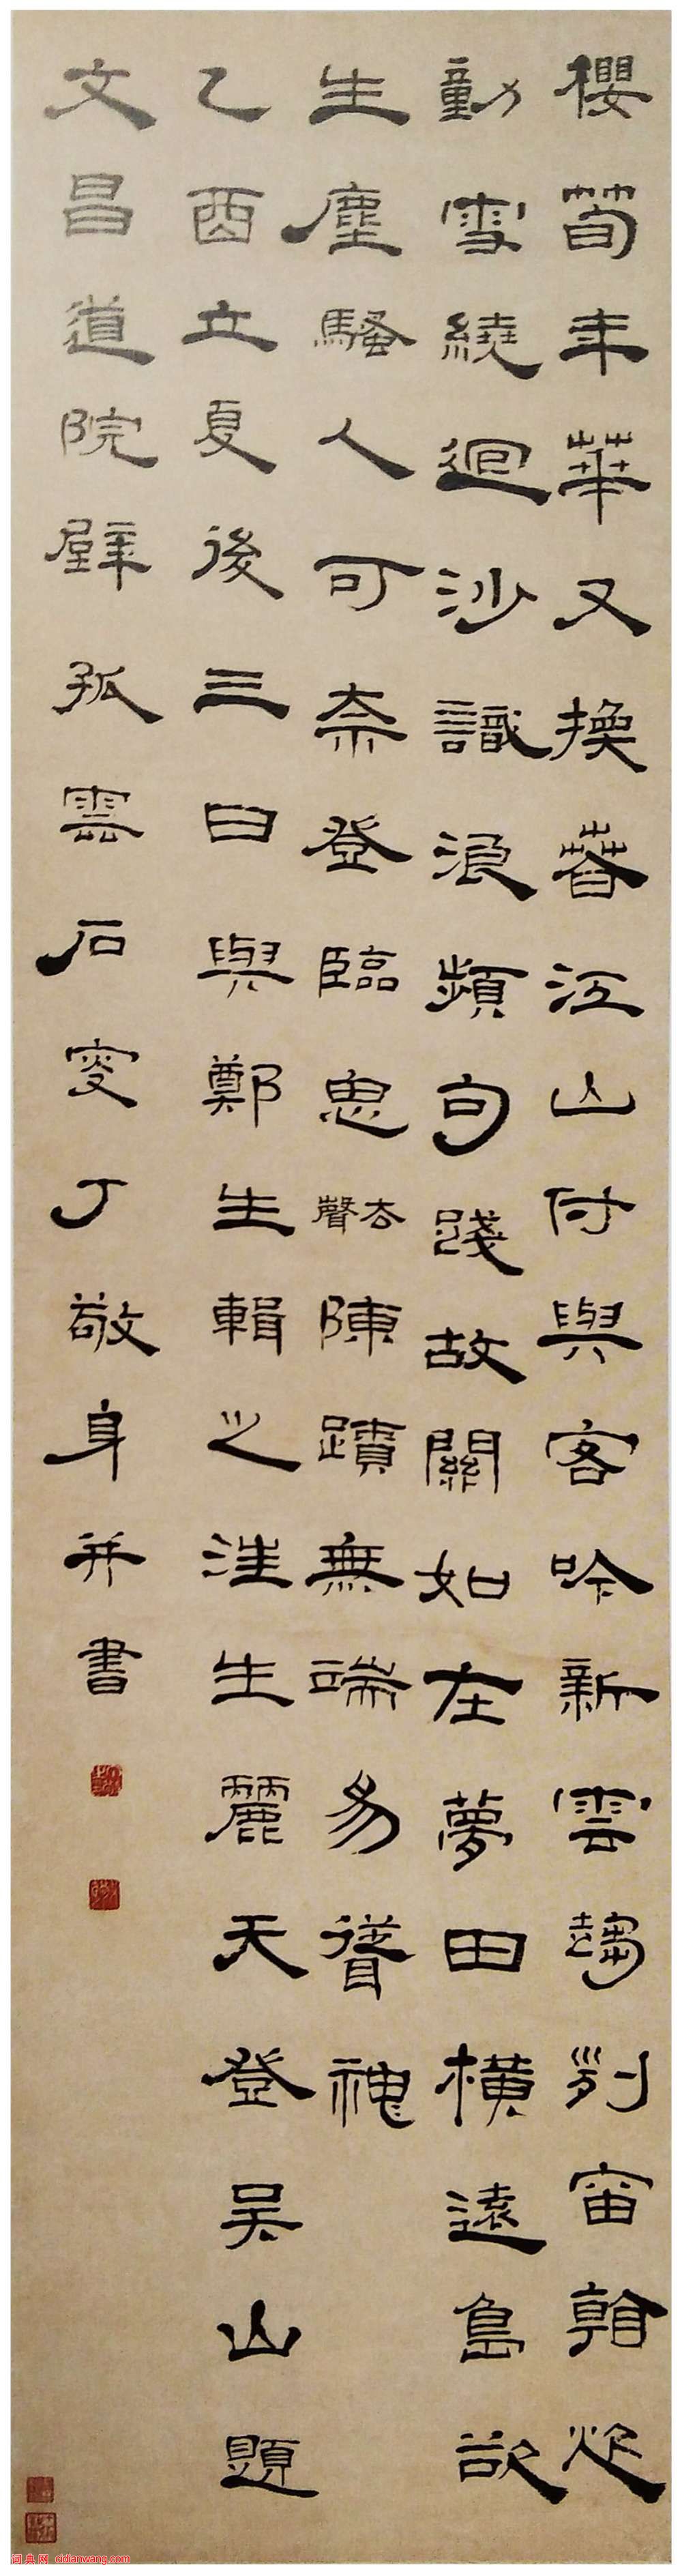 櫻筍年華又換春江山付與客吟新雲趨列宙朝光
動雪繞迴沙識浪頻句踐故關如在夢田橫遠島欲
生塵騷人可奈登臨思去聲陳蹟無端易聳神
乙酉立夏後三日與鄭生輯之汪生麗天登吳山題
文昌道院壁孤雲石叟丁敬身并書
词典网 cidianwang.com